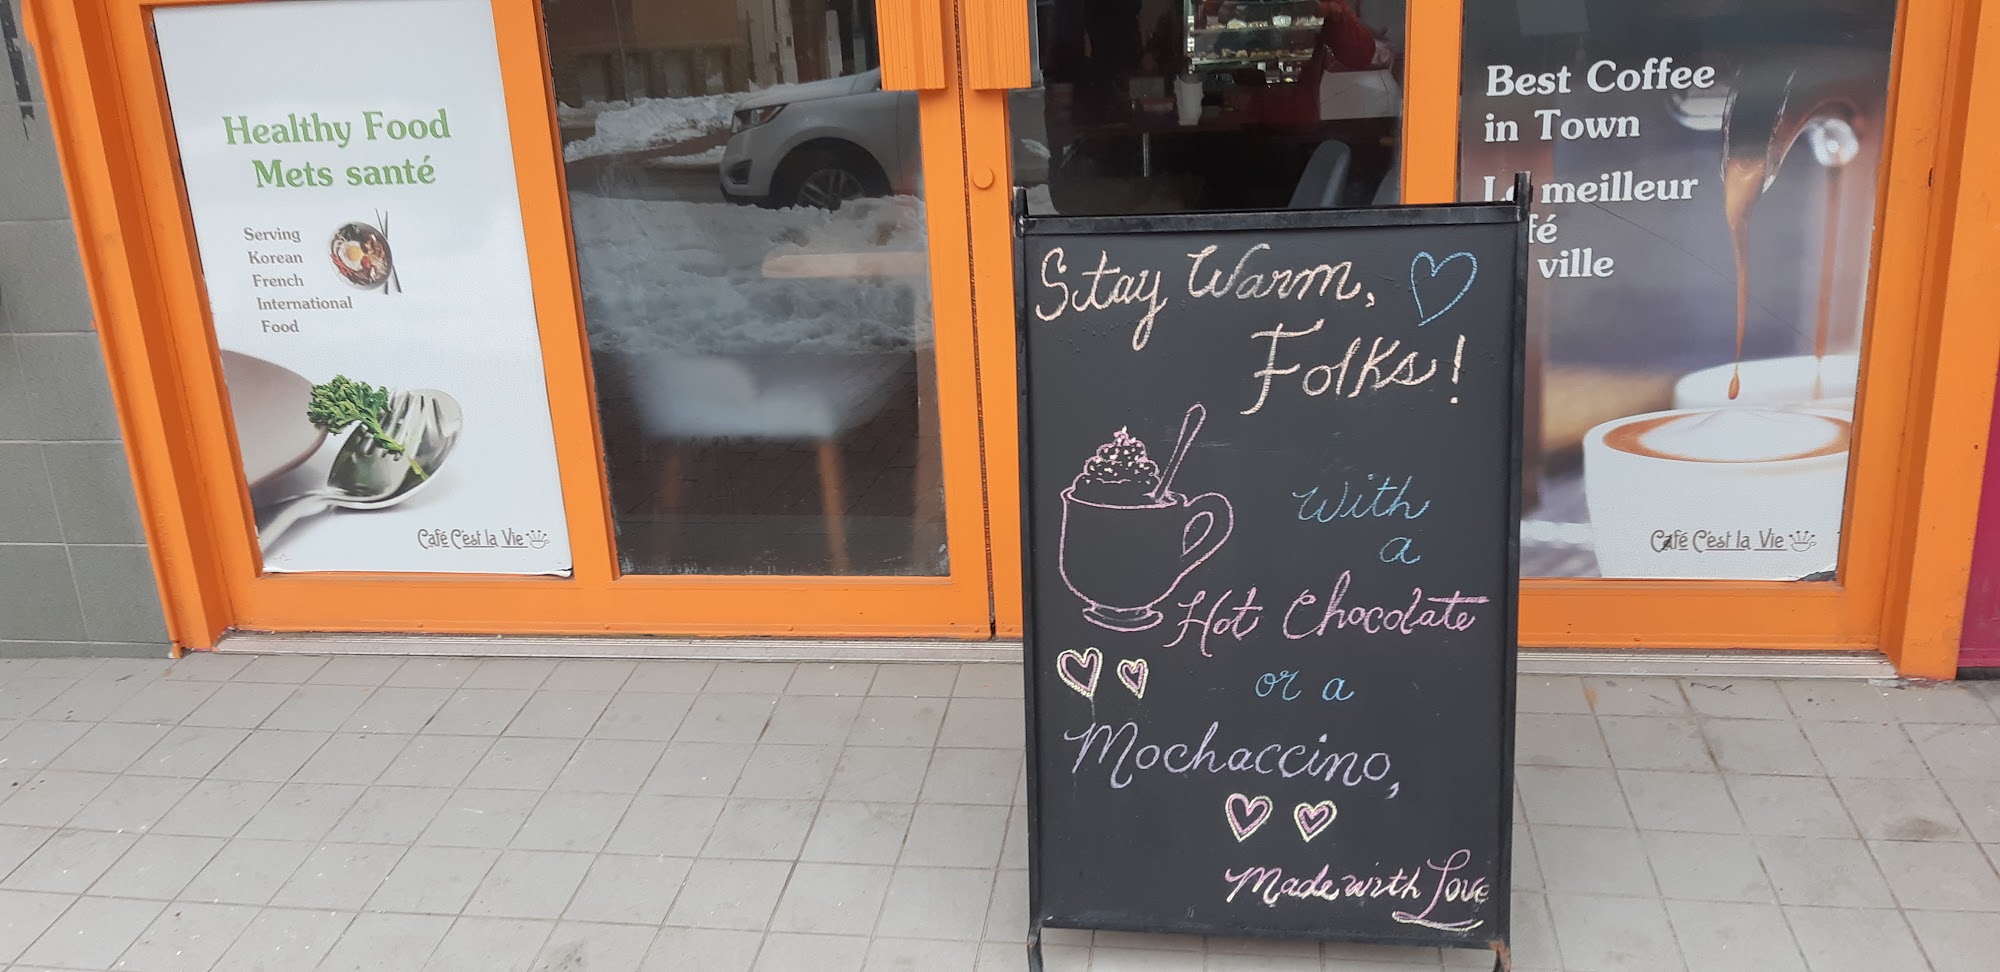 Healthy Food
Mets santé
Serving
Korean
French
International
Food
Café C'est la Vie
Stay Warm,
Folks!
With
a
Hot Chocolate
or a
Mochaccino,
Made with Love
Best Coffee
in Town
Le meilleur
fé
ville
Café C'est la Vie